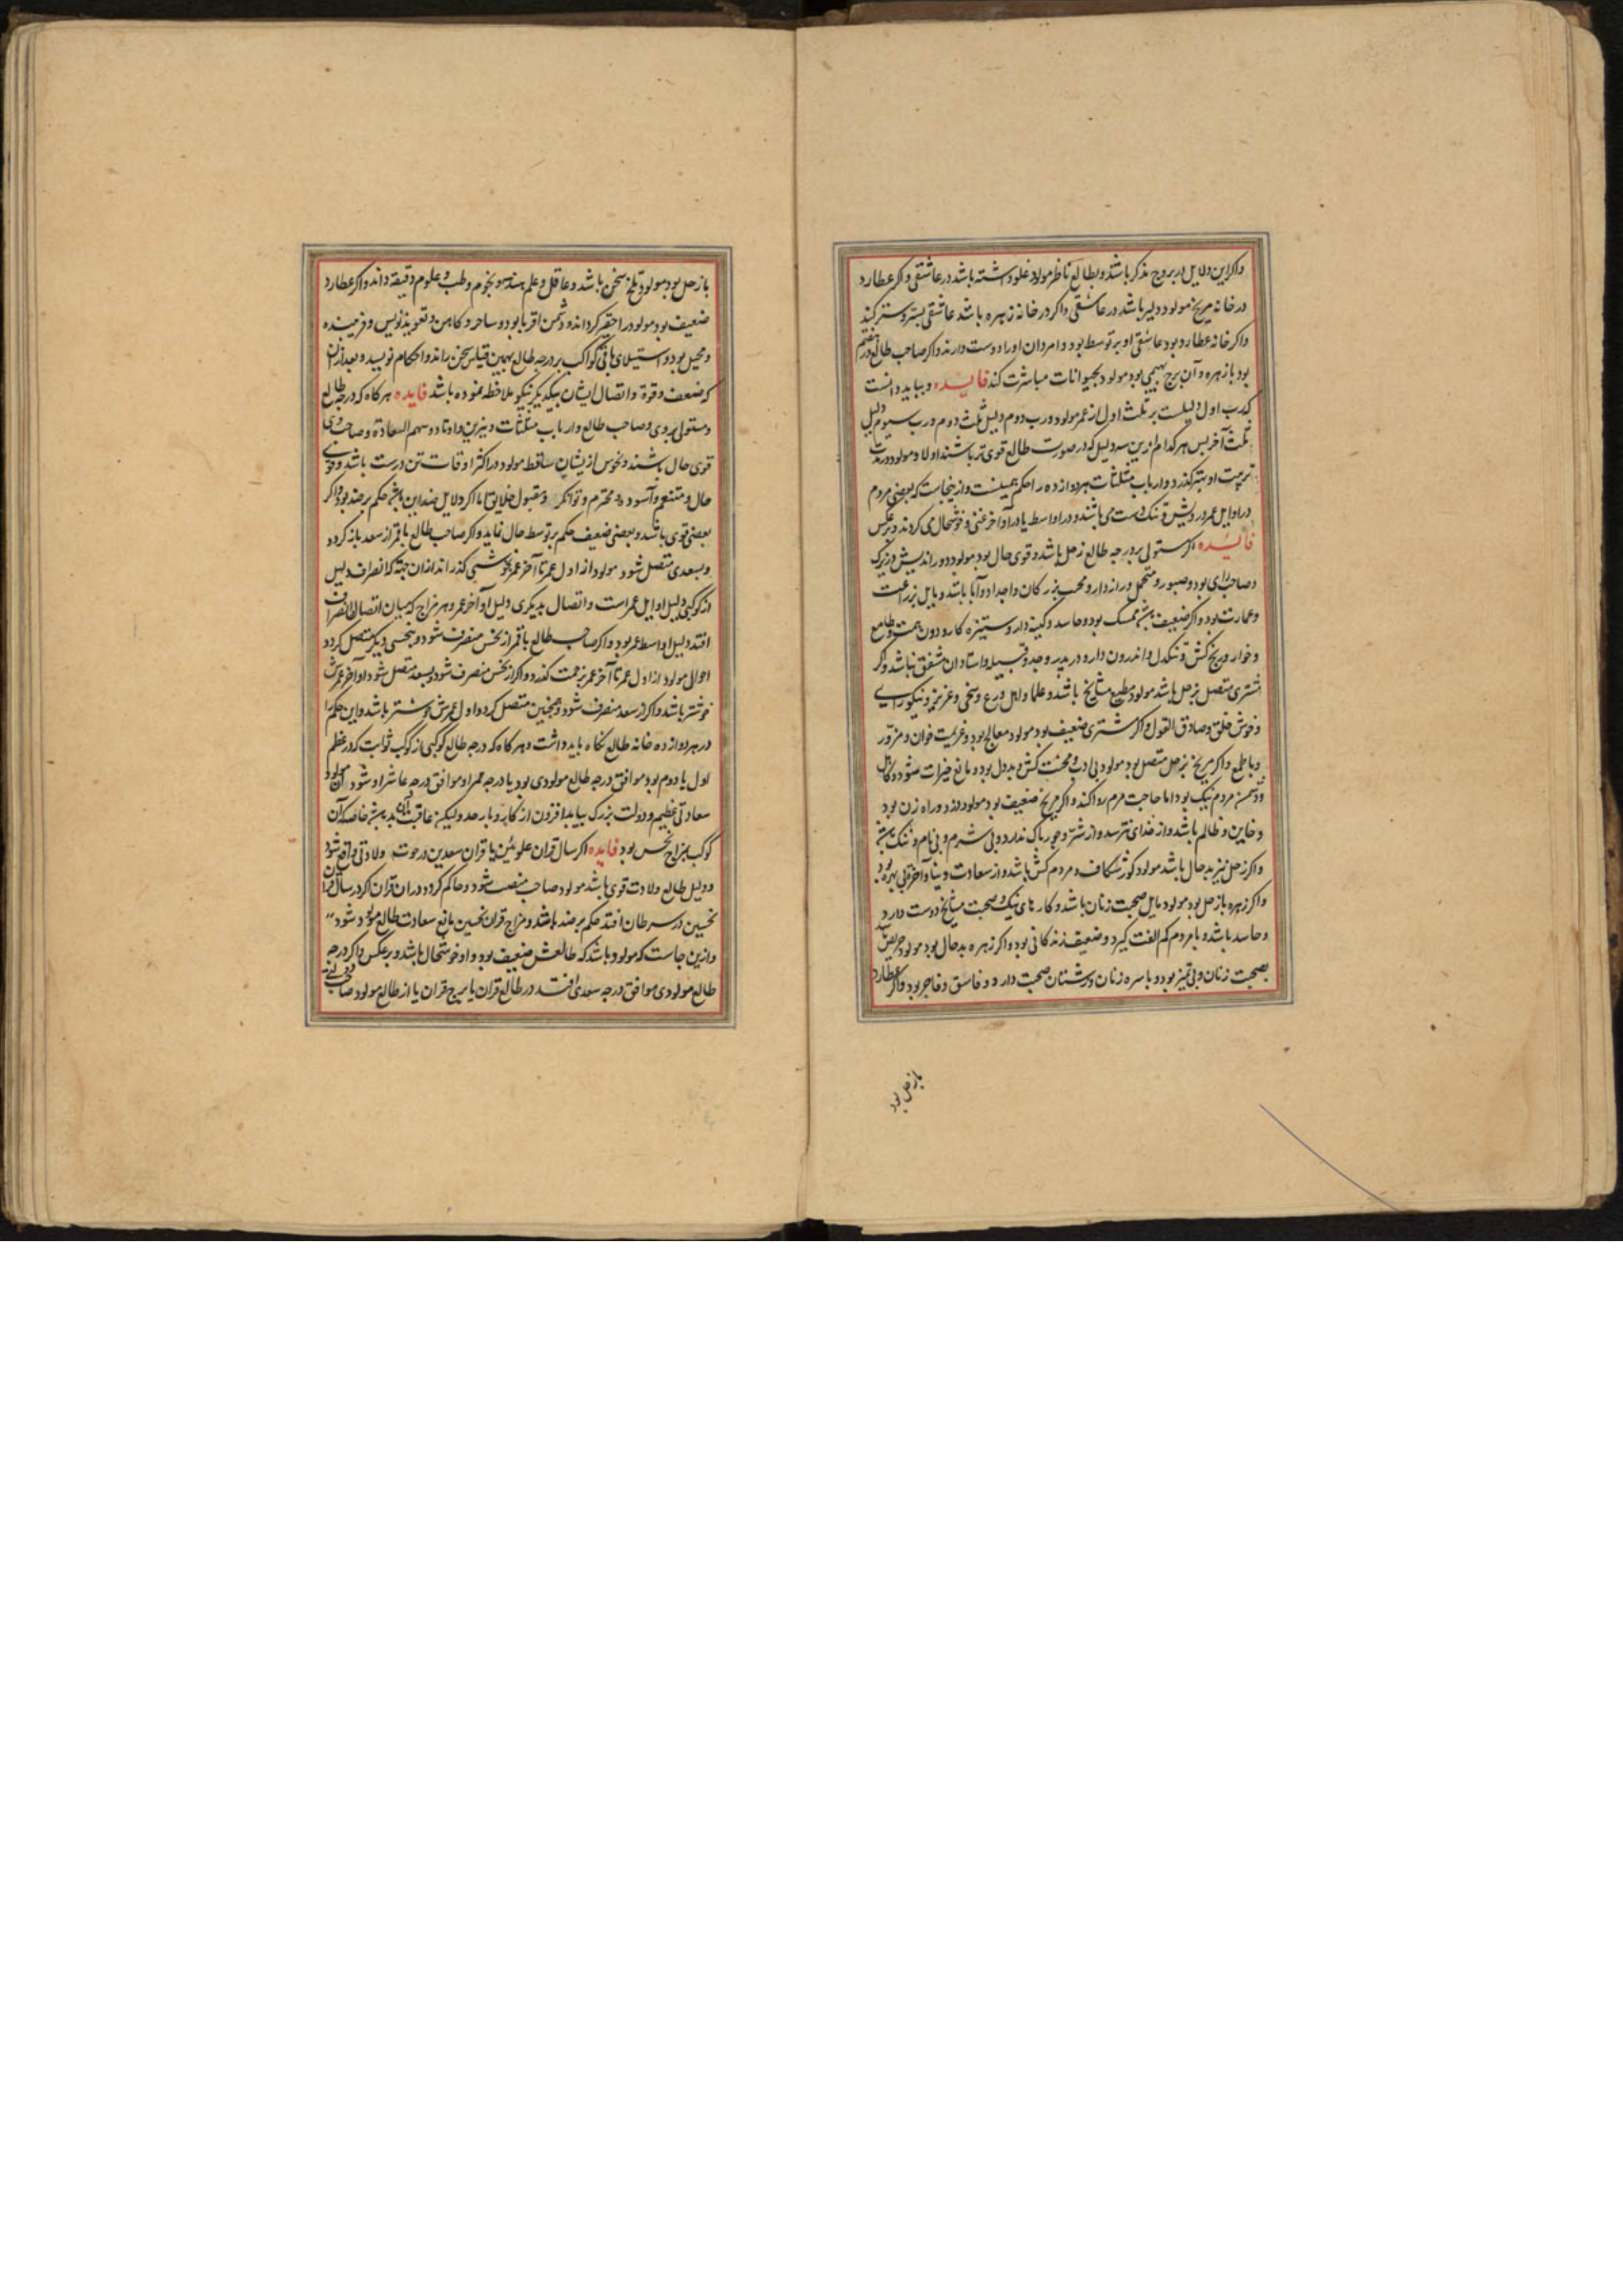 واکر این دلایل در بروج مذکر باشد و بطالع ناظر مولود غلو داشته باشد در عاشقی واکر عطارد
در خانه مریخ مولود دلیر باشد در عاشقی واکر در خانه زهره باشد عاشقی بستر و ستر کند
واکر خانه عطارد بود عاشقی او بر توسط بود و امردان او را دوست دارند واکر صاحب طالع در هفتم
بود با زهره و آن برج بهیمی بود مولود بحیوانات مباشرت کند فایده و بباید دانست
که رب اول دلیلست بر ثلث اول از عمر مولود و رب دوم دلیل ثلث دوم و رب سیوم دلیل
ثلث آخر پس هر کدام ازین سه دلیل که در صورت طالع قوی تر باشند اولا و مولود در مدت
تربیت او بهتر کذرد و ارباب مثلثات هر دوازده را حکم همینست و ازینجاست که بعضی مردم
در اوایل عمر درویش و تنک دست می باشند و در اواسط یا در اواخر غنی و خوشحال می کردند و بر عکس
فایده اکر مستولی بر درجه طالع زحل باشد و قوی حال بود مولود دور اندیش و زیرک
و صاحب رای بود و صبور و متحمل و رازدار و محب بزرکان و اجداد و آبا باشد و مایل بزراعت
و عمارت بود واکر ضعیف باشد ممسک بود و حاسد و کینه دار و ستیزه کار و دون همت و طامع
و خوار و رنج کش و تنکدل و اندرون دار و در پدر و جد و قبیله و استادان مشفق نباشد واکر
مشتری متصل بزحل باشد مولود مطیع مشایخ باشد و علما و اهل ورع و سخی و عزیز و نیکو رای
و خوش خلق و صادق القول واکر مشتری ضعیف بود مولود معالج بود و عزیمت خوان و مزور
و با طمع واکر مریخ بزحل متصل بود مولود بی ادب و محنت کش و بددل بود و مانع خیرات شود و کاهل
و دشمن مردم نیک بود اما حاجت مردم روا کند واکر مریخ ضعیف بود مولود دزد و راه زن بود
و خاین و ظالم باشد و از خدای نترسد و از شر و جور باک ندارد و بی شرم و بی نام و ننک باشد
واکر زحل نیز بدحال باشد مولود کور شکاف و مردم کش باشد و از سعادت دنیا و آخرت بی بهره بود
واکر زهره با زحل بود مولود مایل صحبت زنان باشد و کارهای نیک و صحبت مشایخ دوست دارد
و حاسد باشد و با مردم کم الفت کیرد و ضعیف زندکانی بود واکر زهره بدحال بود مولود حریص باشد
بصحبت زنان و بی تمیز بود و با سره زنان و زشتان صحبت دارد و فاسق و فاجر بود واکر عطارد
با زحل بود
با زحل بود مولود تلخ سخن باشد و عاقل و علم هندسه و نجوم و طب و علوم دقیقه داند واکر عطارد
ضعیف بود مولود را حقیر کرداند و دشمن اقربا بود و ساحر و کاهن و تعویذنویس و فریبنده
و محیل بود و استیلای باقی کواکب بر درجه طالع بهمین قیاس سخن راند و احکام نویسد و بعد از آن
که ضعف و قوة و اتصال ایشان بیکدیکر نیکو ملاحظه نموده باشد فایده هر کاه که درجه طالع
و مستولی بر وی و صاحب طالع و ارباب مثلثات و نیرین و اوتاد و سهم السعادة و صاحب وی
قوی حال باشند و نحوس ازیشان ساقط مولود در اکثر اوقات تن درست باشد و قوی
حال و متنعم و آسوده و محترم و توانکر و مقبول خلایق اما اکر دلایل ضد این باشد حکم بر ضد بود واکر
بعضی قوی باشد و بعضی ضعیف حکم بر توسط حال نماید واکر صاحب طالع یا قمر از سعد بازکردد
و بسعدی متصل شود مولود از اول عمر تا آخر عمر بخوشی کذراند از ان جهة که انصراف دلیل
از کوکبی دلیل اوایل عمر است و اتصال بدیکری دلیل اواخر عمر و هر مزاج که میان اتصال و انصراف
افتد دلیل اواسط عمر بود واکر صاحب طالع یا قمر از نحس منصرف شود و بنحسی دیکر متصل کردد
احوال مولود از اول عمر تا آخر عمر بزحمت کذرد واکر از نحس منصرف شود و بسعد متصل شود اواخر عمرش
خوشتر باشد واکر از سعد منصرف شود و بنحس متصل کردد اول عمرش خوشتر باشد و این حکم را
در هر دوازده خانه طالع نکاه باید داشت و هر کاه که درجه طالع کوکبی از کواکب ثوابت که در عظم
اول یا دوم بود موافق درجه طالع مولودی بود یا درجه قمر او موافق درجه عاشر او شود آن مولود
سعادتی عظیم و دولت بزرک بیابد افزون از کار و بار خود ولیکن عاقبت آن بد باشد خاصه که آن
کوکب بمزاج نحس بود فایده اکر سال قران علویین یا قران سعدین در حوت ولادتی واقع شود
و دلیل طالع ولادت قوی باشد مولود صاحب منصب شود و حاکم کردد در ان قران اکر در سال قران
نحسین در سرطان افتد حکم بر ضد باشد و مزاج قران نحسین مانع سعادت طالع مولود شود
و ازین جاست که مولود باشد که طالعش ضعیف بود و او خوشحال باشد و بر عکس واکر درجه
طالع مولودی موافق درجه سعدی افتد در طالع قران یا برج قران یا از طالع مولود صاحب دولتی